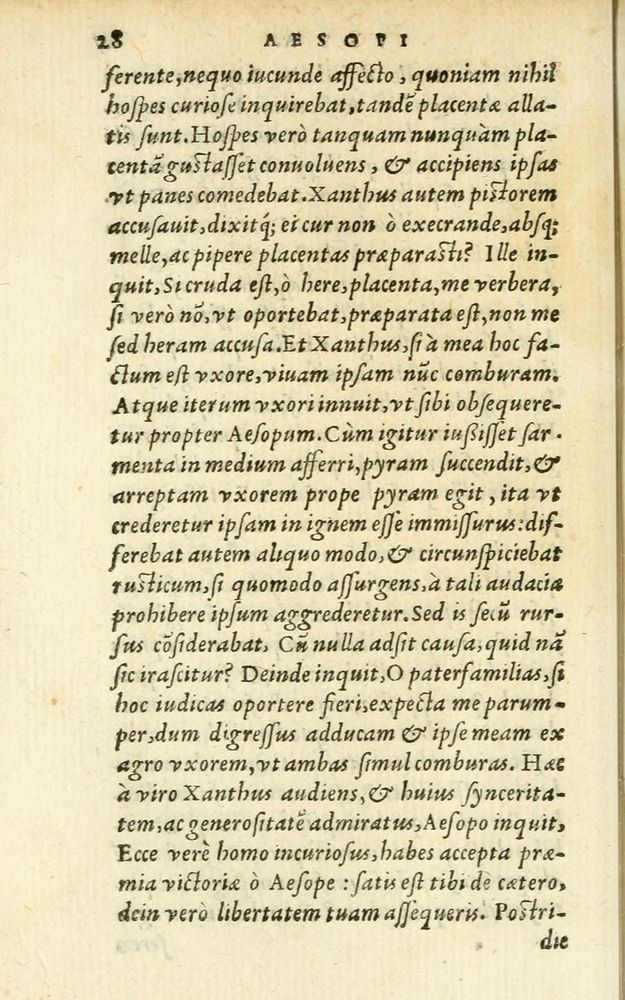 28 AESOPI
ferente,nequo iucunde affecto, quoniam nihil
hoſpes curioſe inquirebat,tandē placentæ alla-
tis ſunt.Hoſpes verò tanquam nunquàm pla-
centā guſtaſſet conuoluens, & accipiens ipſas
vt panes comedebat.Xanthus autem piſtorem
accuſauit,dixitq́; ei cur non ò execrande,abſq;
melle,ac pipere placentas præparaſti? Ille in-
quit, Si cruda eſt,ò here,placenta,me verbera,
ſi verò nō,vt oportebat,præparata eſt,non me
ſed heram accuſa.Et Xanthus,ſi à mea hoc fa-
ctum eſt vxore,viuam ipſam nūc comburam.
Atque iterum vxori innuit,vt ſibi obſequere-
tur propter Aeſopum.Cùm igitur iußiſſet ſar-
menta in medium afferri,pyram ſuccendit,&
arreptam vxorem prope pyram egit, ita vt
crederetur ipſam in ignem eſſe immiſſurus:dif-
ferebat autem aliquo modo,& circunſpiciebat
ruſticum,ſi quomodo aſſurgens,à tali audacia
prohibere ipſum aggrederetur.Sed is ſecū rur-
ſus cōſiderabat, Cū nulla adſit cauſa,quid nā
ſic iraſcitur? Deinde inquit,O paterfamilias,ſi
hoc iudicas oportere fieri,expecta me parum-
per,dum digreſſus adducam & ipſe meam ex
agro vxorem,vt ambas ſimul comburas. Hæc
à viro Xanthus audiens,& huius ſyncerita-
tem,ac generoſitatē admiratus,Aeſopo inquit,
Ecce verè homo incurioſus,habes accepta præ-
mia victoriæ ò Aeſope : ſatis eſt tibi de cætero,
dein verò libertatem tuam aſſequeris. Poſtri-
die